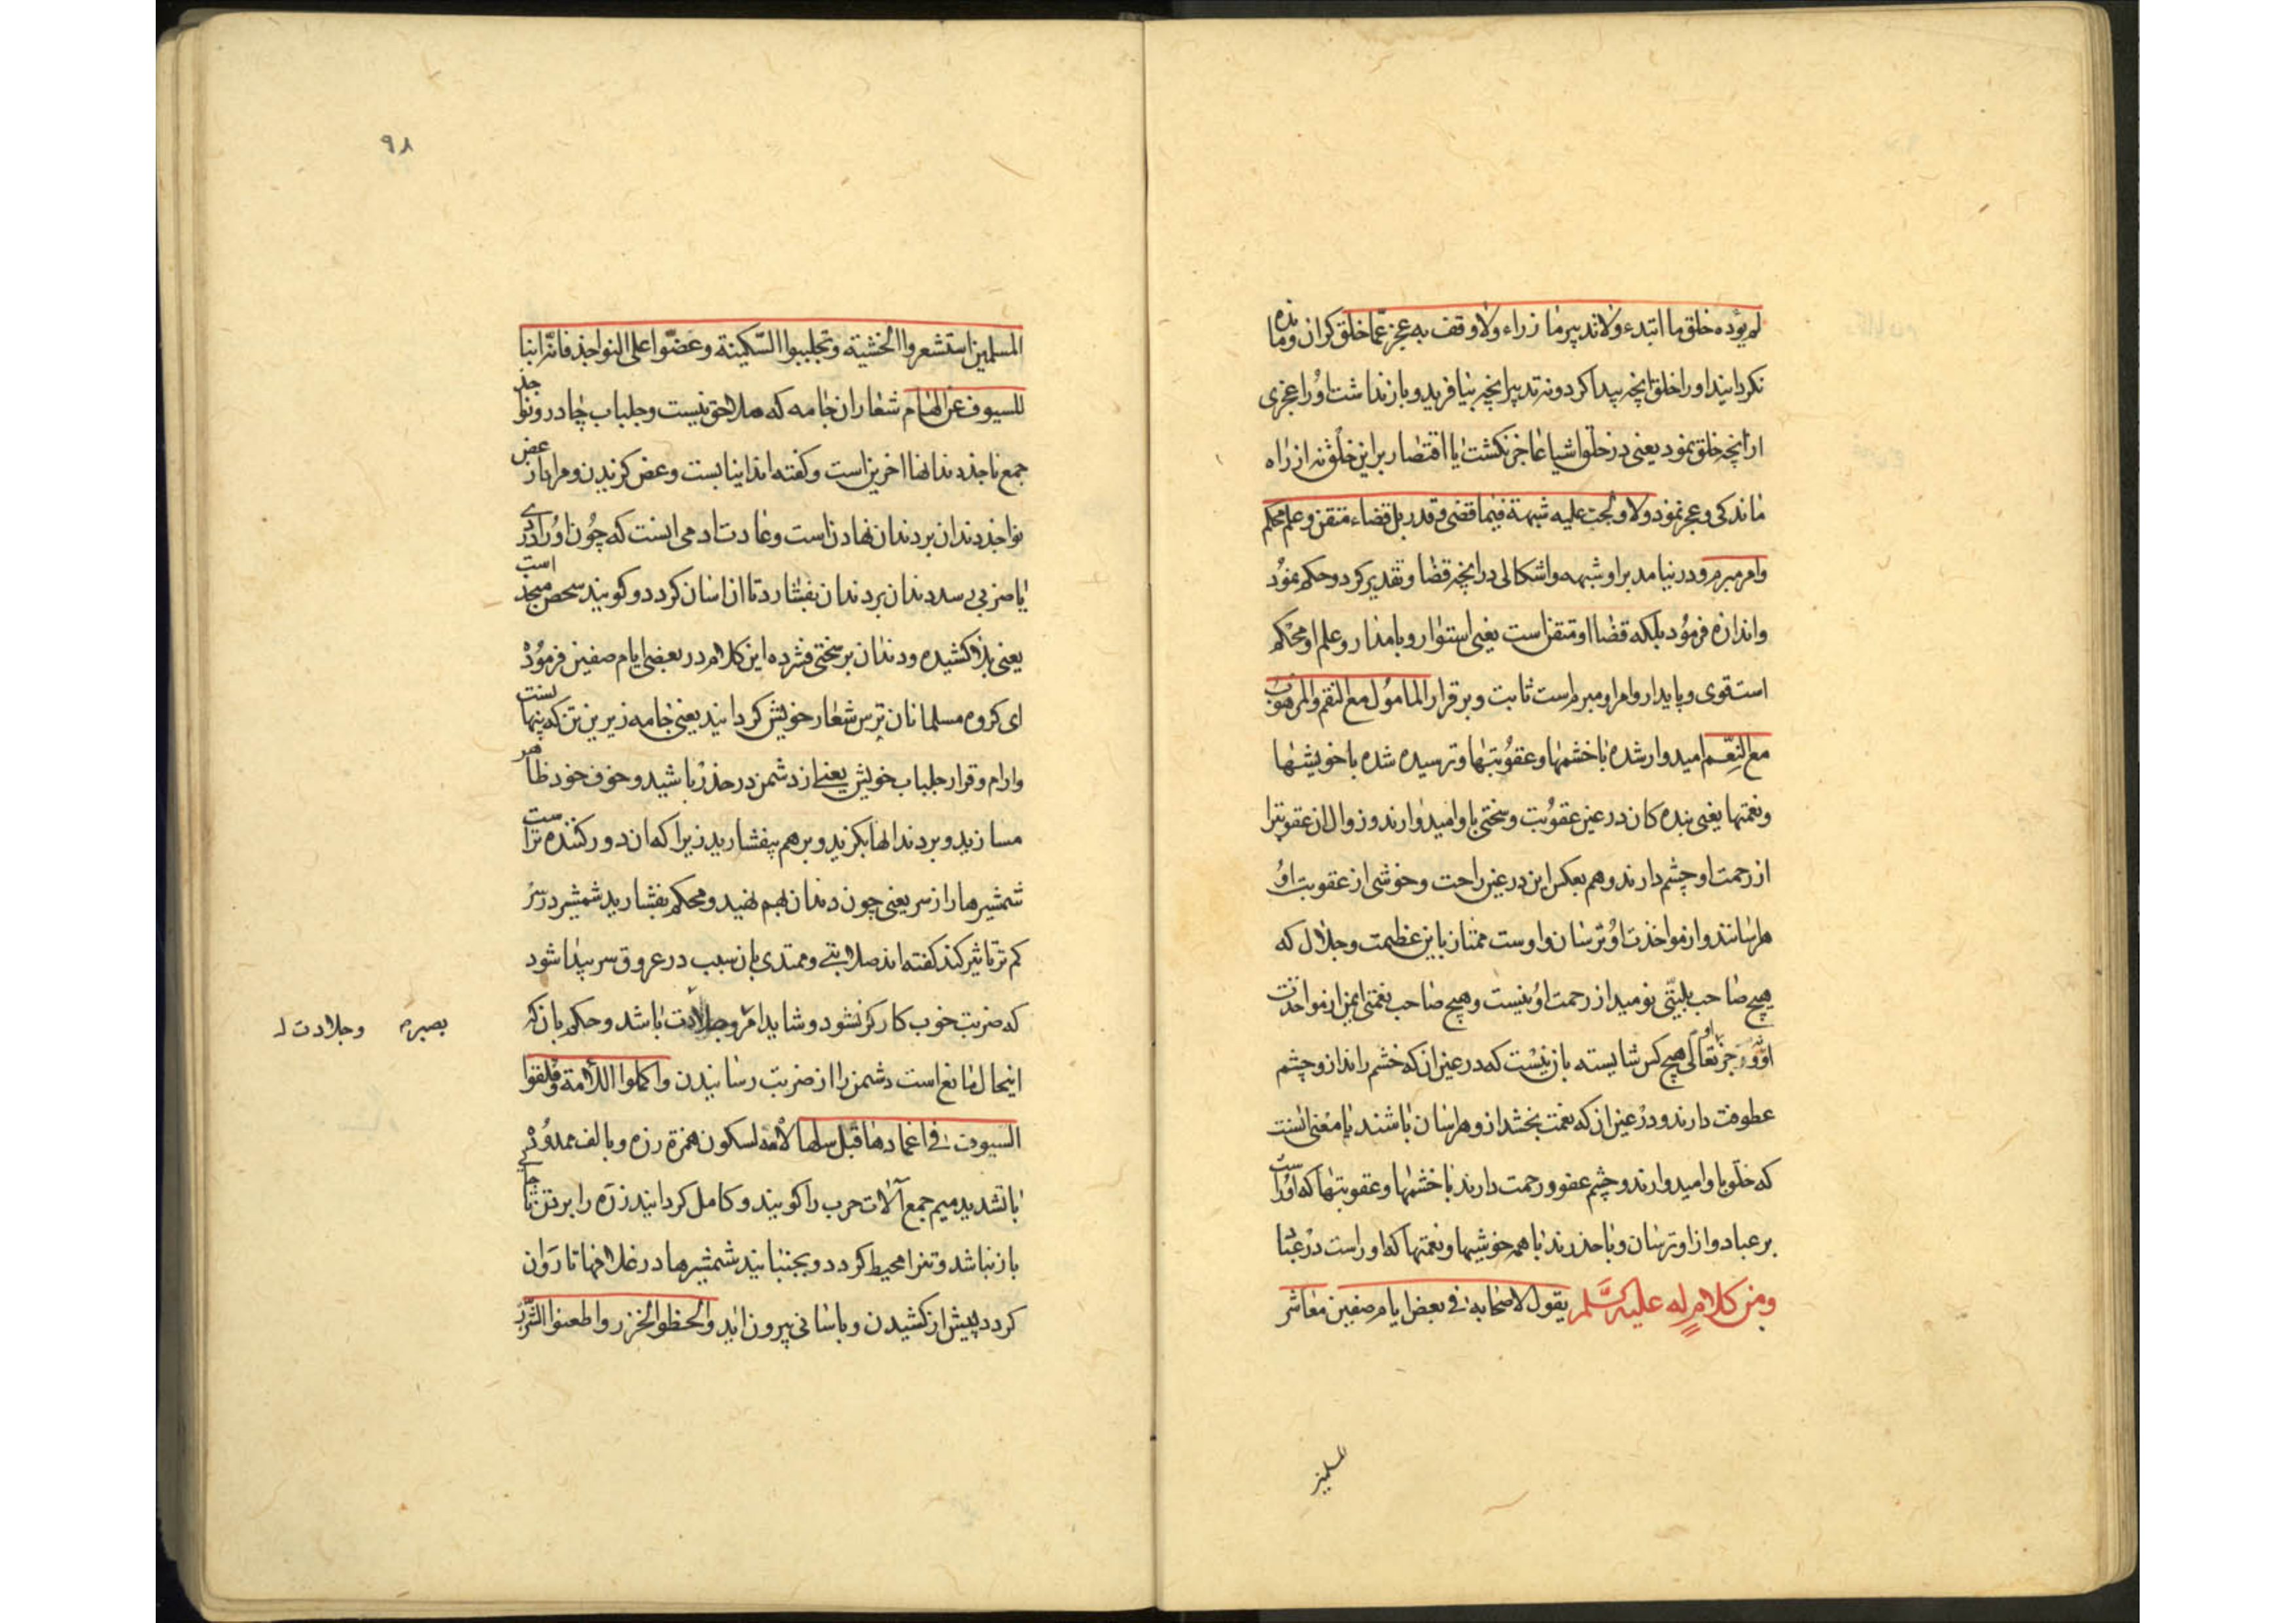 لم یؤده خلق ما ابتدء ولا تدبیر ما زراء ولا وقف به عجز عمّا خلق کران و مانده
نکردانید او را خلق انچه پیدا کرد و نه تدبیر انچه بیافرید و باز نداشت او را عجزی
از انچه خلق نمود یعنی در خلق اشیا عاجز نکشت یا اقتصار بر این خلق نه از راه
ماندکی و عجز نمود ولا ولجت علیه شبهة فیما قضی و قدر بل قضاء متقن و علم محکم
وامر مبرم و در نیامد بر او شبهه و اشکالی در انچه قضا و تقدیر کرد و حکم نمود
و اندازه فرمود بلکه قضا او متقن است یعنی استوار و بامدار و علم او محکم
است قوی و پایدار و امر او مبرم است ثابت و برقرار المامول مع النقم والمرهوب
مع النِعَم امیدوار شده با خشمها و عقوبتها و ترسیده شده با خویشیها
و نعمتها یعنی بنده کان در عین عقوبت و سختی باو امیدوارند و زوال ان عقوبترا
از رحمت او چشم دارند و هم بعکس این در عین راحت و خوشی از عقوبت او
هراسانند و از مواخذت او ترسان و اوست ممتاز باین عظیمت و جلال که
هیچ صاحب بلیّتی نومید از رحمت او نیست و هیچ صاحب نعمتی ایمن از مواخذت
او و جز او تعالی هیچ کس شایسته بان نیست که در عین ان که خشم راند از و چشم
عطوفت دارند و در عین ان که نعمت بخشد از و هراسان باشند یا معنی انست
که خلق باو امیدوارند و چشم عفو و رحمت دارند با خشمها و عقوبتها که او راست
بر عباد و از او ترسان و با حذرند با همه خوشیها و نعمتها که او راست در عباد
ومن کلام له علیه السّلم یقول لاصحابه فی بعض ایام صفین معاشر
المسلمین
٩٨
المسلمین استشعروا الخشیة وتجلببوا السّکینة وعضّوا علی النواجذ فانّه انبا
للسیوف عن الهام شعار ان جامه که ملاحق نیست و جلباب چادر و نواجذ
جمع ناجذ دندانها اخرین است و کفته اند اینابست و عض کزیدن و مراد از عض
نواجذ دندان بر دندان نهادن است و عادت ادمی اینست که چون او را دردی
یا ضربی رسد دندان بر دندان بفشارد تا ان اسان کردد و کویند شخص منجذ است
یعنی بذا کشیده و دندان بر سختی فشرده این کلام در بعضی ایام صفین فرمود
ای کروه مسلمانان ترس شعار خویش کردانید یعنی جامه زیرین تن که پنهانست
و ارام و قرار جلباب خویش یعنی از دشمن در حذر باشید و خوف خود ظاهر
مسازید و بر دندانها بکزید و بر هم بیفشارید زیرا که ان دور کننده تراست
شمشیرها را از سر یعنی چون دندان بهم نهید و محکم بفشارید شمشیر در سر
کم تر تاثیر کند کفته اند صلابتی و ممتدی بان سبب در عروق سر پیدا شود
که ضربت خوب کارکر نشود و شاید امر و جلادت باشد و حکم بان که
بصبر
وجلادت
اینحال مانع است دشمن را از ضربت رسانیدن واکملوا اللّامة وقلقوا
السیوف فی اغمادها قبل سلها لامه لسکون همزة زره و بالف ممدود
با تشدید میم جمع آلات حرب را کویند و کامل کردانید زره را بر تن تا جایی
باز نباشد و تنرا محیط کردد و بجنبانید شمشیرها در غلافها تا روان
کردد پیش از کشیدن و باسانی بیرون اید والحظوا الخزر واطعنوا الشّزر